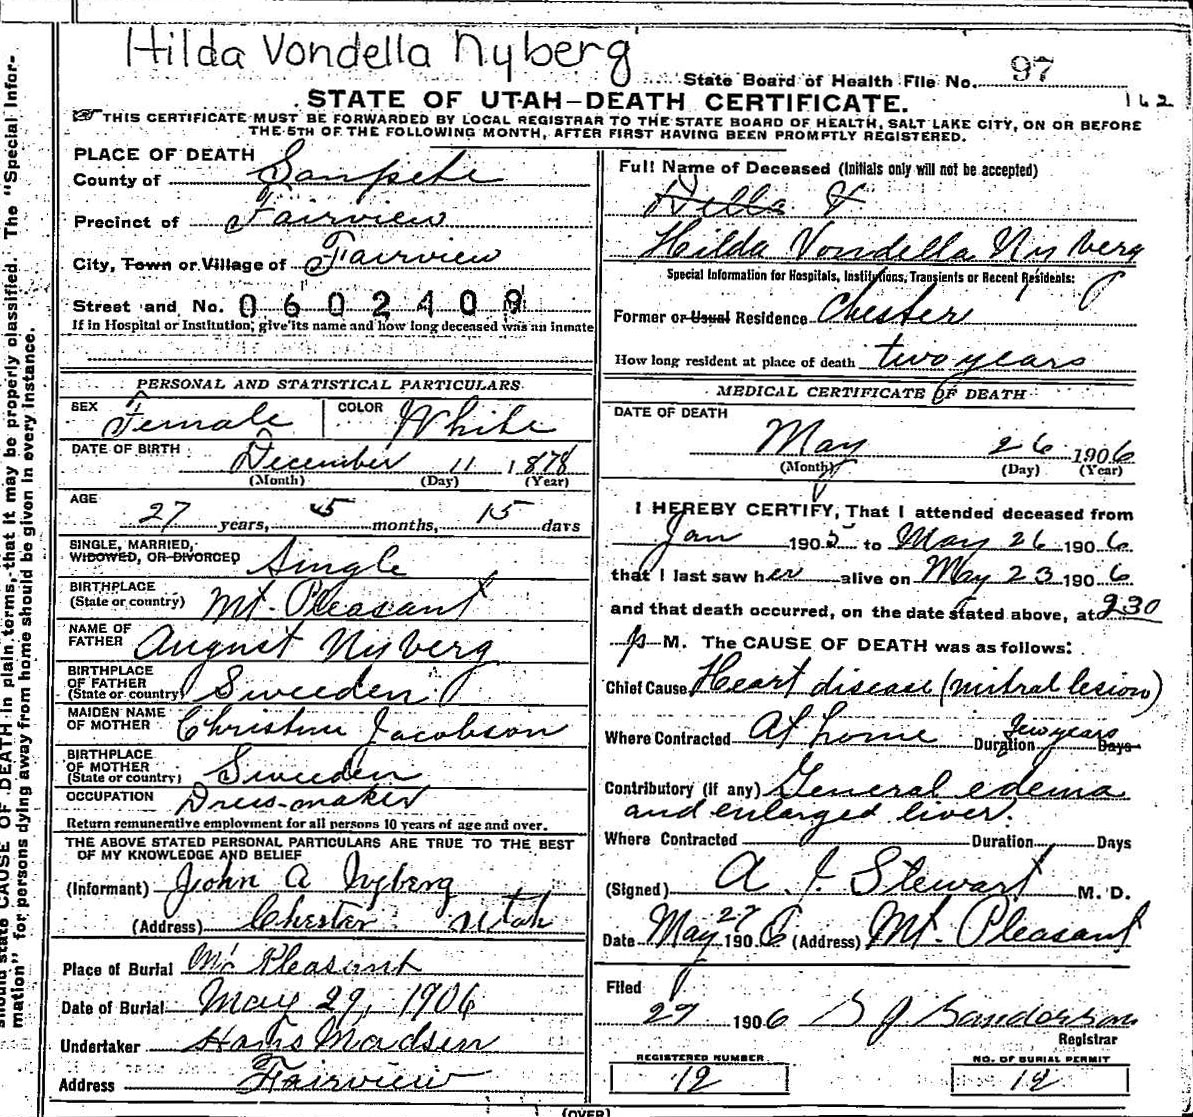 Hilda Vondella Nyberg
State Board of Health File No. 97
STATE OF UTAH—DEATH CERTIFICATE.
162
THIS CERTIFICATE MUST BE FORWARDED BY LOCAL REGISTRAR TO THE STATE BOARD OF HEALTH, SALT LAKE CITY, ON OR BEFORE
THE 5TH OF THE FOLLOWING MONTH, AFTER FIRST HAVING BEEN PROMPTLY REGISTERED.
PLACE OF DEATH
County of Sanpete
Precinct of Fairview
City, Town or Village of Fairview
Street and No. 0602409
If in Hospital or Institution, give its name and how long deceased was an inmate
PERSONAL AND STATISTICAL PARTICULARS
SEX Female COLOR White
DATE OF BIRTH December 11 1878
(Month) (Day) (Year)
AGE
27 years, 5 months, 15 days
SINGLE, MARRIED,
WIDOWED, OR DIVORCED Single
BIRTHPLACE
(State or country) Mt. Pleasant
NAME OF
FATHER August Nyberg
BIRTHPLACE
OF FATHER
(State or country) Sweeden
MAIDEN NAME
OF MOTHER Christine Jacobson
BIRTHPLACE
OF MOTHER
(State or country) Sweeden
OCCUPATION Dress-maker
Return remunerative employment for all persons 10 years of age and over.
THE ABOVE STATED PERSONAL PARTICULARS ARE TRUE TO THE BEST
OF MY KNOWLEDGE AND BELIEF
(Informant) John A Nyberg
(Address) Chester Utah
Place of Burial Mt Pleasant
Date of Burial May 29, 1906
Undertaker Hans Madsen
Address Fairview
Full Name of Deceased (Initials only will not be accepted)
Della V
Hilda Vondella Nyberg
Special Information for Hospitals, Institutions, Transients or Recent Residents:
Former or Usual Residence Chester
How long resident at place of death two years
MEDICAL CERTIFICATE OF DEATH
DATE OF DEATH
May 26 1906
(Month) (Day) (Year)
I HEREBY CERTIFY, That I attended deceased from
Jan 1905 to May 26 1906
that I last saw her alive on May 23 1906
and that death occurred, on the date stated above, at 930
p M. The CAUSE OF DEATH was as follows:
Chief Cause Heart disease (mitral lesion)
Where Contracted At home Duration few years Days
Contributory (if any) General edema
and enlarged liver.
Where Contracted Duration Days
(Signed) A. I. Stewart M. D.
Date May 27 1906 (Address) Mt. Pleasant
Filed
27 1906 S J Sanderson
Registrar
REGISTERED NUMBER
12
NO. OF BURIAL PERMIT
12
(OVER)
should state CAUSE OF DEATH in plain terms, that it may be properly classified. The "Special Infor-
mation" for persons dying away from home should be given in every instance.